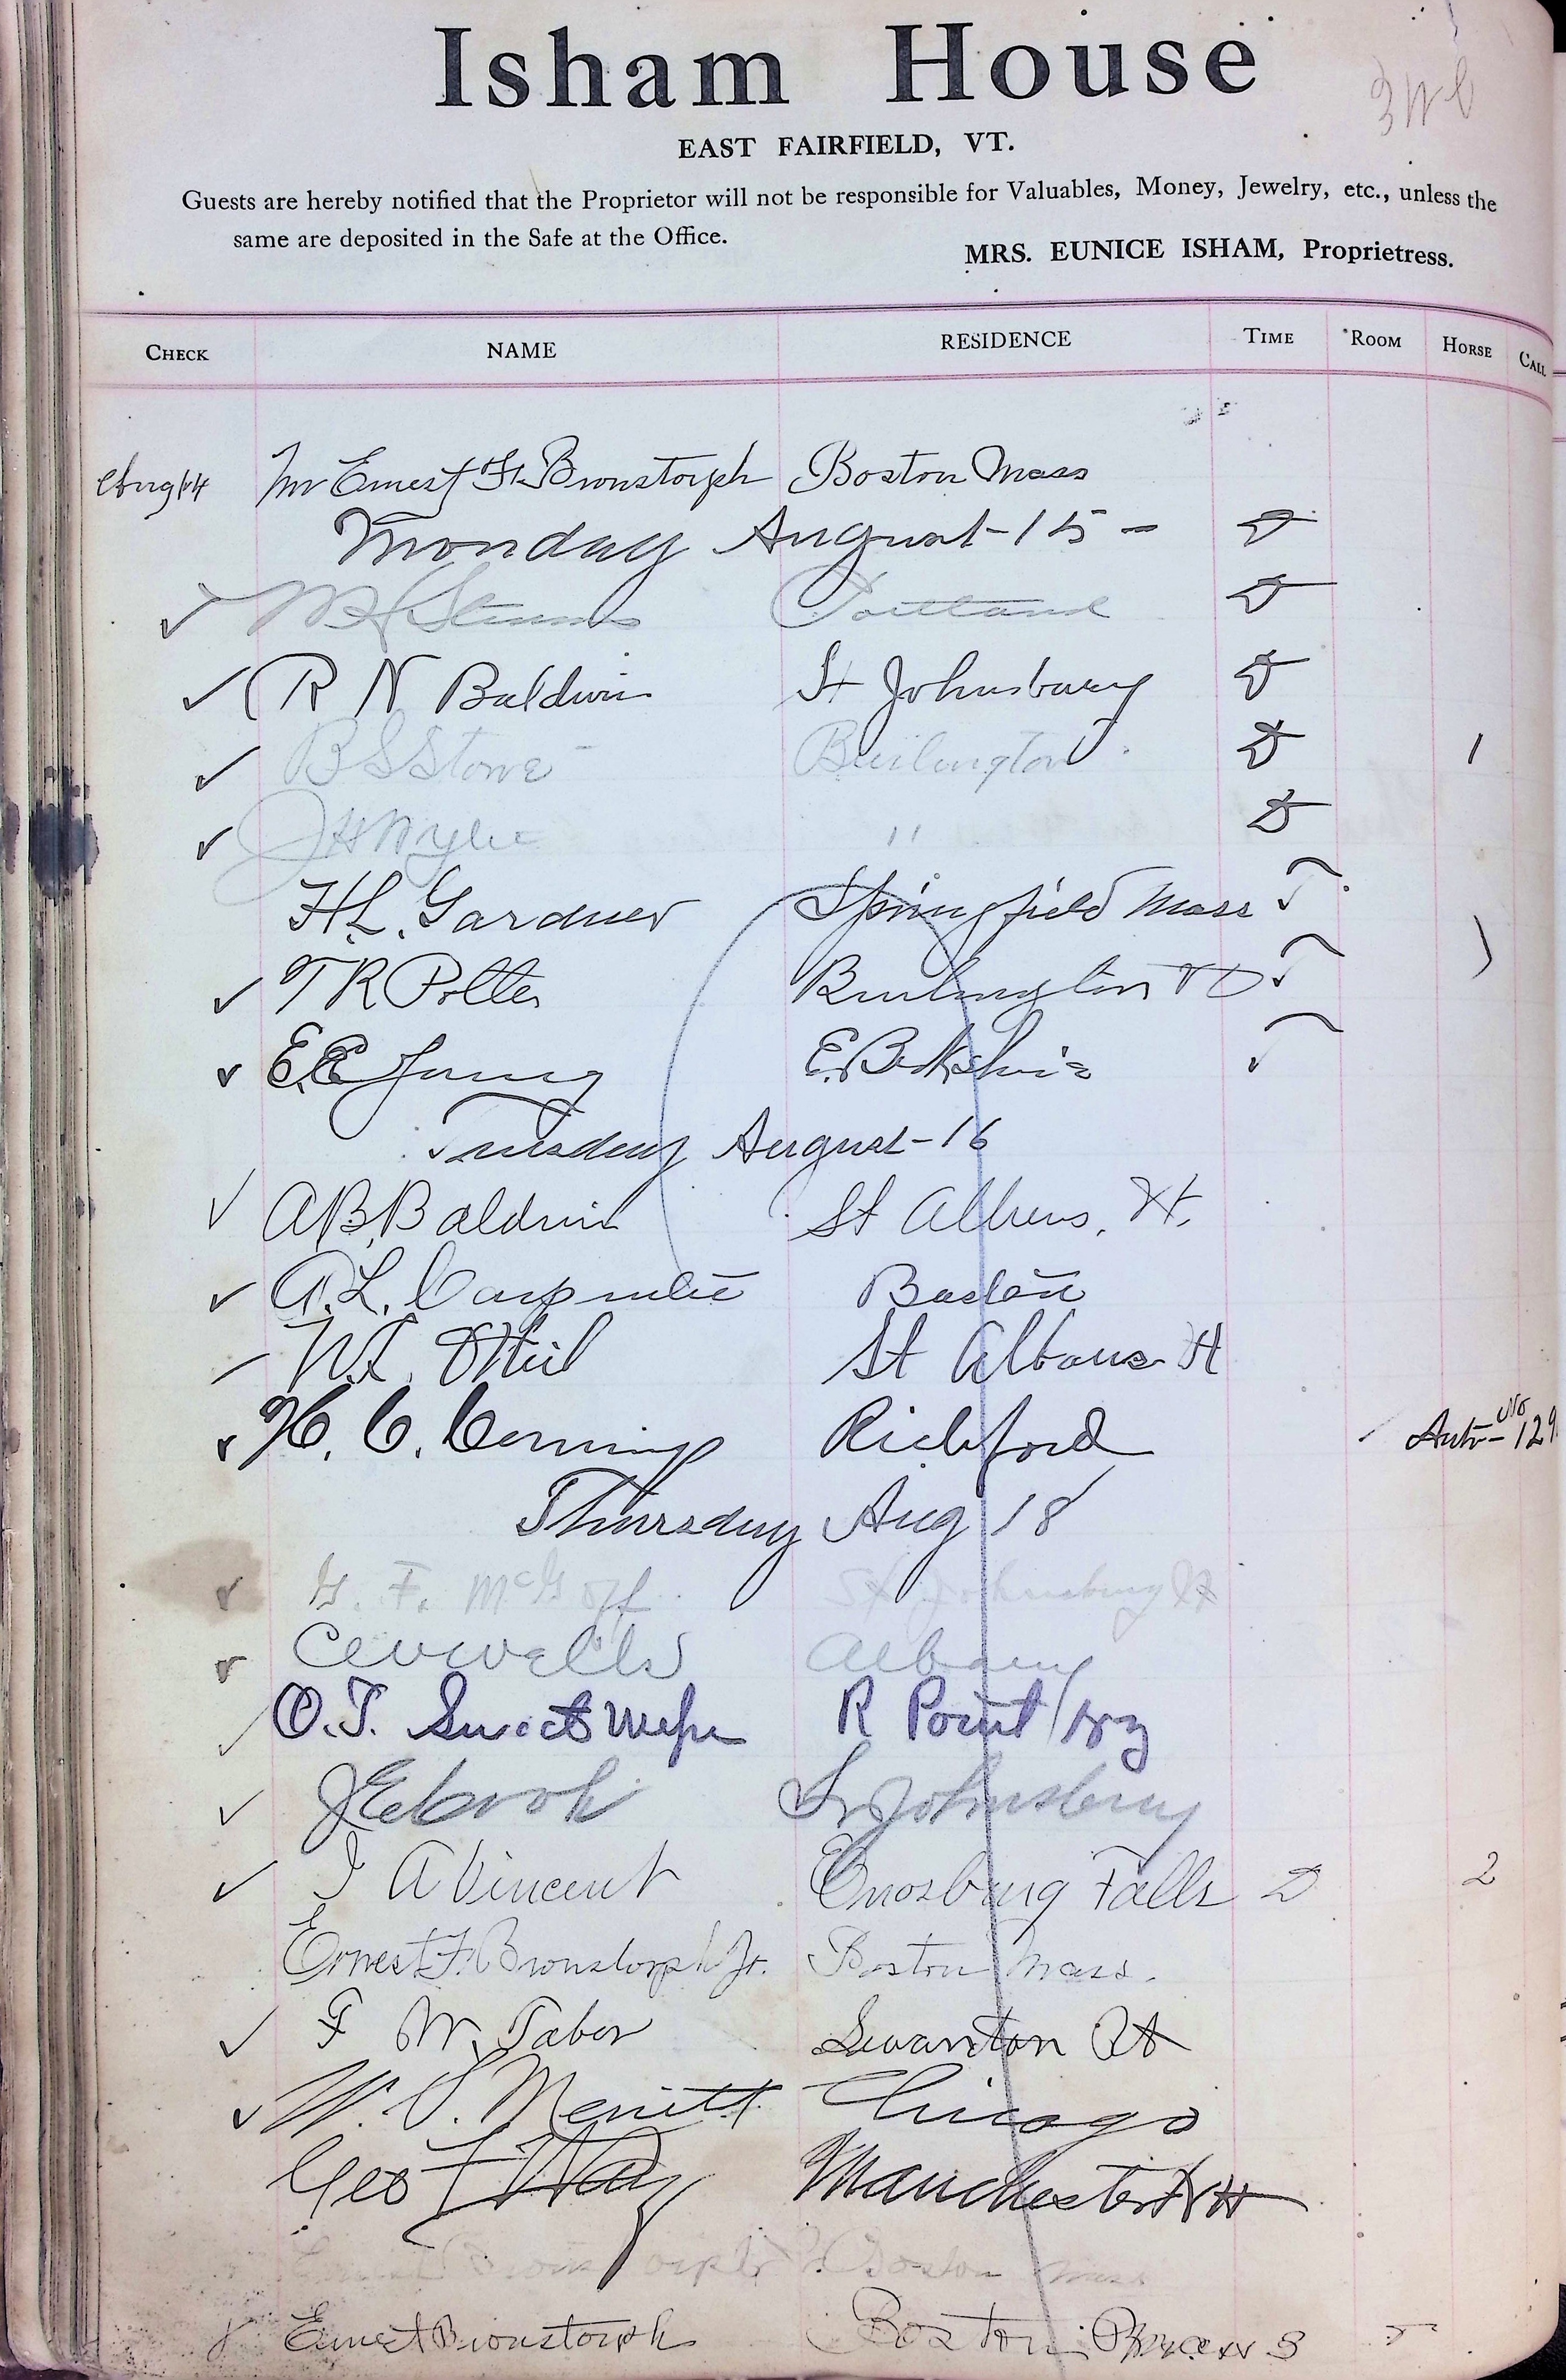 Isham House
EAST FAIRFIELD, VT.
Guests are hereby notified that the Proprietor will not be responsible for Valuables, Money, Jewelry, etc., unless the
same are deposited in the Safe at the Office.
MRS. EUNICE ISHAM, Proprietress.
CHECK NAME RESIDENCE TIME ROOM HORSE CALL
Aug 14 Mr Ernest F. Bronstorph Boston Mass
Monday August-15-
Portland
R N Baldwin St Johnsbury
B S Stowe Burlington 1
J H Wylie "
H.L. Gardner Springfield Mass
T R Potter Burlington Vt
E.E. Young E. Berkshire
Tuesday August-16
A.B. Baldwin St Albans, Vt.
A.L. Carpenter Boston
St Albans Vt
H. C. Comings Richford Auto No 129
Thursday Aug 18
G. F. McGoff St Johnsbury Vt
Wells Albany
O.T. R Point
St Johnsbury
I A Vincent Enosburg Falls D 2
Ernest F. Bronstorph Jr. Boston Mass.
F W. Tabor Swanton Vt
W. S. Merritt Chicago
Geo F Way Manchester N H
Boston Mass
Ernest Bronstorph Boston